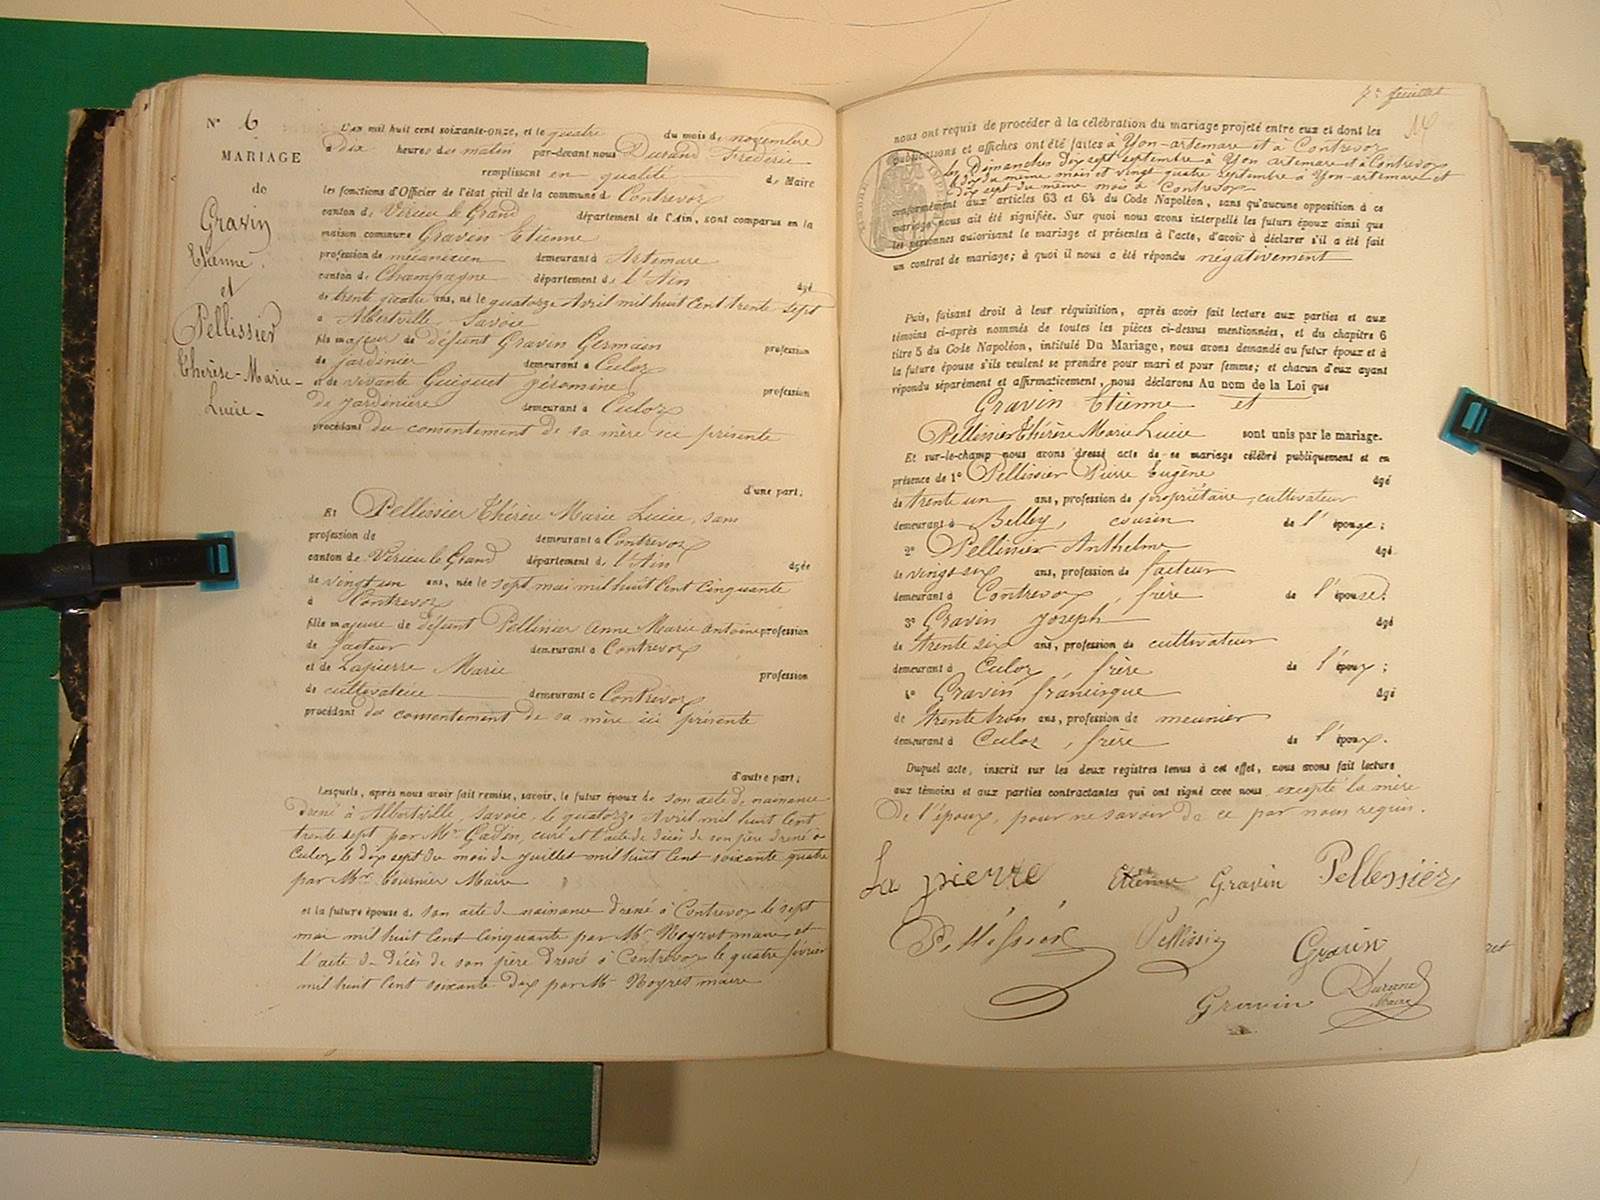 N° 6
MARIAGE
de
Gravin
Etienne
et
Pellissier
Thérèse-Marie-
Lucie-
L'an mil huit cent soixante-onze, et le quatre du mois de novembre
à dix heures du matin par-devant nous Durand Frédéric
remplissant en qualité de Maire
les fonctions d'Officier de l'état civil de la commune de Contrevoz
canton de Virieu le Grand département de l'Ain, sont comparus en la
maison commune Gravin Etienne
profession de mécanicien demeurant à Artemare
canton de Champagne département de l'Ain âgé
de trente quatre ans, né le quatorze Avril mil huit cent trente sept
à Albertville Savoie
fils majeur de défunt Gravin Germain profession
de jardinier demeurant à Culoz
et de vivante Guiguet Jéromine profession
de jardinière demeurant à Culoz
procédant du consentement de sa mère ici présente
d'une part;
Et Pellissier Thérèse Marie Lucie, sans
profession de demeurant à Contrevoz
canton de Virieu le Grand département de l'Ain âgée
de vingt un ans, née le sept mai mil huit cent cinquante
à Contrevoz
fille majeure de défunt Pellissier Anne Marie Antoine profession
de facteur demeurant à Contrevoz
et de Lapierre Marie profession
de cultivatrice demeurant à Contrevoz
procédant du consentement de sa mère ici présente
d'autre part;
Lesquels, après nous avoir fait remise, savoir, le futur époux de son acte de naissance
dressé à Albertville, Savoie, le quatorze Avril mil huit cent
trente sept par Mr curé et l'acte de décès de son père dressé à
Culoz le dix sept du mois de juillet mil huit cent soixante quatre
par Mr Fournier Maire
et la future épouse de son acte de naissance dressé à Contrevoz le sept
mai mil huit cent cinquante par Mr Noyret maire et
l'acte de décès de son père dressé à Contrevoz le quatre février
mil huit cent soixante dix par Mr Noyret maire
7e feuillet
nous ont requis de procéder à la célébration du mariage projeté entre eux et dont les
publications et affiches ont été faites à Yon-artemare et à Contrevoz
les Dimanches dix sept septembre à Yon artemare et à Contrevoz
du même mois et vingt quatre septembre à Yon-artemare et
dix sept du même mois à Contrevoz
conformément aux articles 63 et 64 du Code Napoléon, sans qu'aucune opposition à ce
mariage nous ait été signifiée. Sur quoi nous avons interpellé les futurs époux ainsi que
les personnes autorisant le mariage et présentes à l'acte, d'avoir à déclarer s'il a été fait
un contrat de mariage; à quoi il nous a été répondu négativement
Puis, faisant droit à leur réquisition, après avoir fait lecture aux parties et aux
témoins ci-après nommés de toutes les pièces ci-dessus mentionnées, et du chapitre 6
titre 5 du Code Napoléon, intitulé Du Mariage, nous avons demandé au futur époux et à
la future épouse s'ils veulent se prendre pour mari et pour femme; et chacun d'eux ayant
répondu séparément et affirmativement, nous déclarons Au nom de la Loi que
Gravin Etienne et
Pellissier Thérèse Marie Lucie sont unis par le mariage.
Et sur-le-champ nous avons dressé acte de ce mariage célébré publiquement et en
présence de 1° Pellissier Pierre Eugène âgé
de trente un ans, profession de propriétaire, cultivateur
demeurant à Belley, cousin de l'épouse;
2° Pellissier Anthelme âgé
de vingt six ans, profession de facteur
demeurant à Contrevoz, frère de l'épouse;
3° Gravin Joseph âgé
de trente six ans, profession de cultivateur
demeurant à Culoz frère de l'époux;
4° Gravin francisque âgé
de trente trois ans, profession de meunier
demeurant à Culoz, frère de l'époux.
Duquel acte, inscrit sur les deux registres tenus à cet effet, nous avons fait lecture
aux témoins et aux parties contractantes qui ont signé avec nous excepté la mère
de l'époux, pour ne savoir de ce par nous requis.
La pierre Etienne Gravin Pellissier
Pellissier Pellissier Gravin
Gravin Durand
Maire